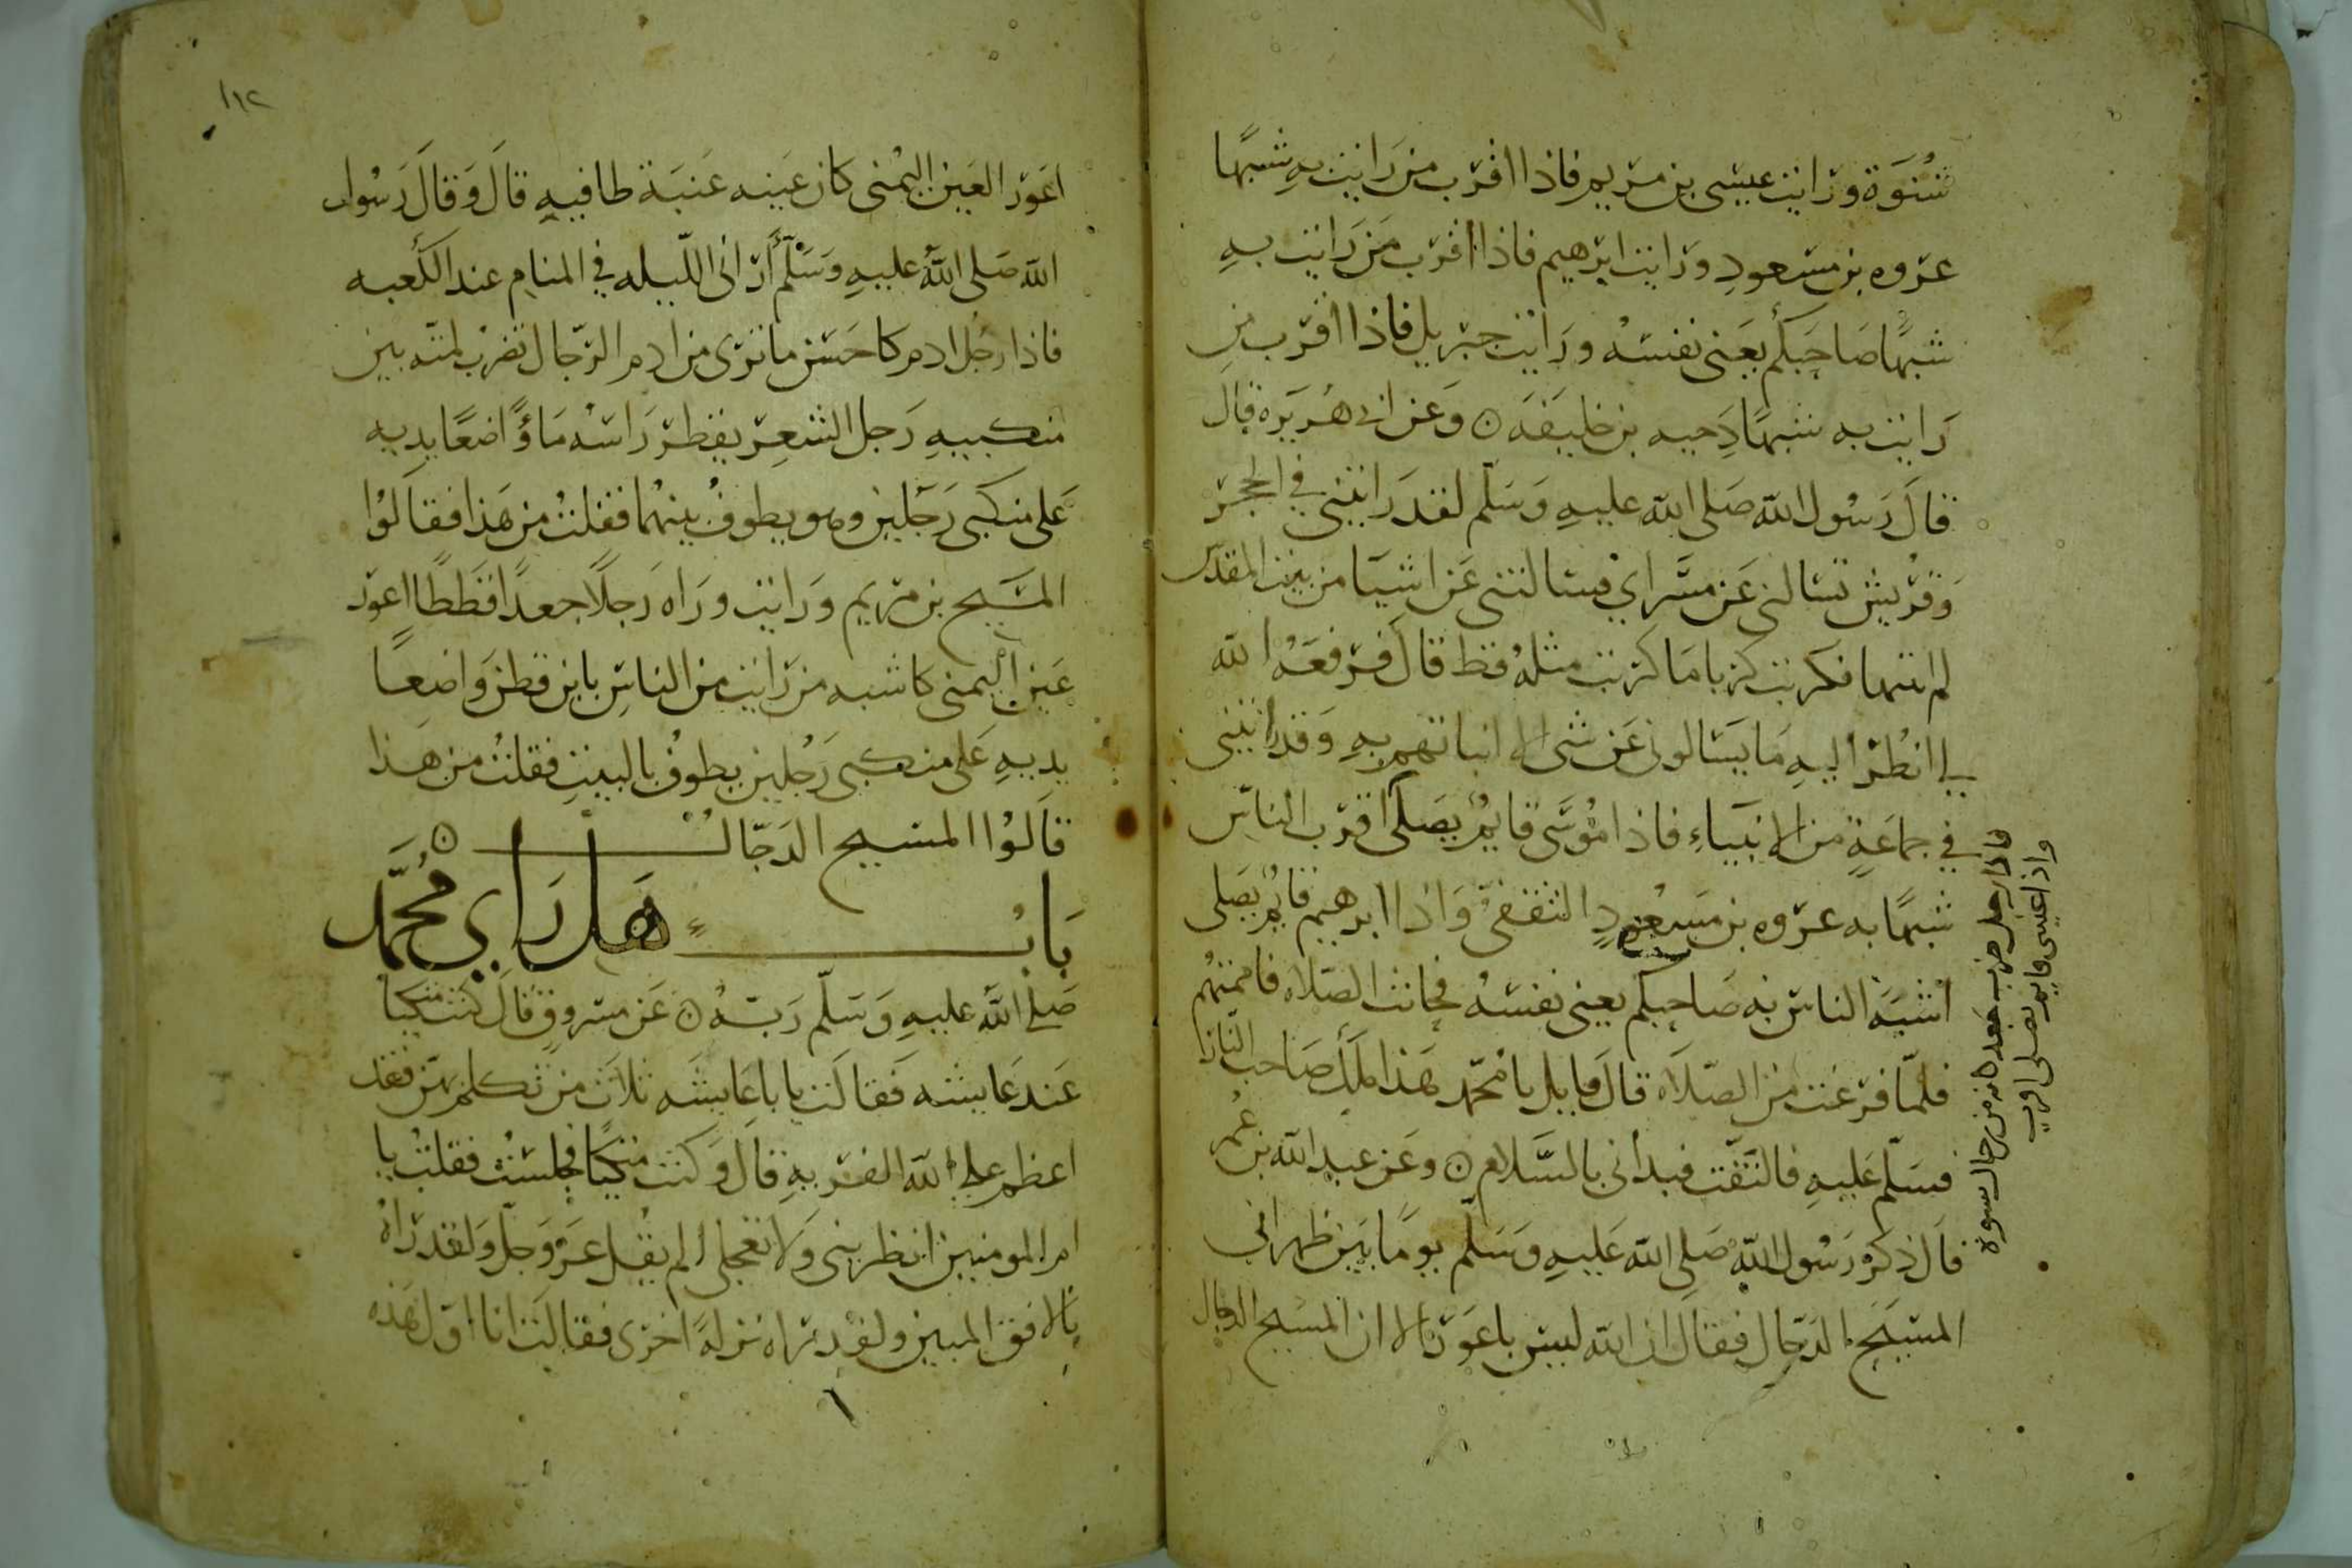 شنوة ورايت عيسى بن مريم فاذا اقرب من رايت به شبها
عروه بن مسعود ورايت ابرهيم فاذا اقرب من رايت به
شبها صاحبكم يعنى نفسه ورايت جبريل فاذا اقرب من
رايت به شبها دحيه بن خليفه ه وعن ابى هريره قال
قال رسول الله صلى الله عليه وسلم لقد رايتنى في الحجر
وقريش تسالنى عن مسراي فسالتنى عن اشيا من بيت المقدس
لم اثبتها فكربت كربا ما كربت مثله قط قال فرفعه الله
لى انظر اليه ما يسالونى عن شى الا انباتهم به وقد رايتنى
في جماعة من الانبياء فاذا موسى قايم يصلى اقرب الناس
شبها به عروه بن مسعود الثقفي واذا ابرهيم قايم يصلى
اشبه الناس به صاحبكم يعنى نفسه فحانت الصلاه فاممتهم
فلما فرغت من الصلاه قال قايل يا محمد هذا ملك صاحب النار
فسلم عليه فالتفت فبدانى بالسلام ه وعن عبد الله بن عمر
قال ذكر رسول الله صلى الله عليه وسلم يوما بين ظهراني
المسيح الدجال فقال ان الله ليس باعور الا ان المسيح الدجال
فاذا رجل ضرب جعد كانه من رجال شنوة
واذا عيسى قايم يصلى اقرب
١١٢
اعور العين اليمنى كان عينه عنبة طافيه قال وقال رسول
الله صلى الله عليه وسلم أرانى الليله في المنام عند الكعبه
فاذا رجل ادم كاحسن ما ترى من ادم الرجال تضرب لمته بين
منكبيه رجل الشعر يقطر راسه ماؤ اضعا يديه
على منكبى رجلين وهو يطوف بينهما فقلت من هذا فقالوا
المسيح بن مريم ورايت وراه رجلا جعدا قططا اعور
عين اليمنى كاشبه من رايت من الناس بابن قطن واضعا
يديه على منكبى رجلين يطوف بالبيت فقلت من هذا
قالوا المسيح الدجال ه
باب هل راي محمد
صلى الله عليه وسلم ربه ه عن مسروق قال كنت متكيا
عند عايشه فقالت يا با عايشه ثلاث من تكلم بهن فقد
اعظم على الله الفريه قال وكنت متكيا فجلست فقلت يا
ام المومنين انظرينى ولا تعجلى الم يقل عز وجل ولقد راه
بالافق المبين ولقد راه نزلة اخرى فقالت انا اول هذه